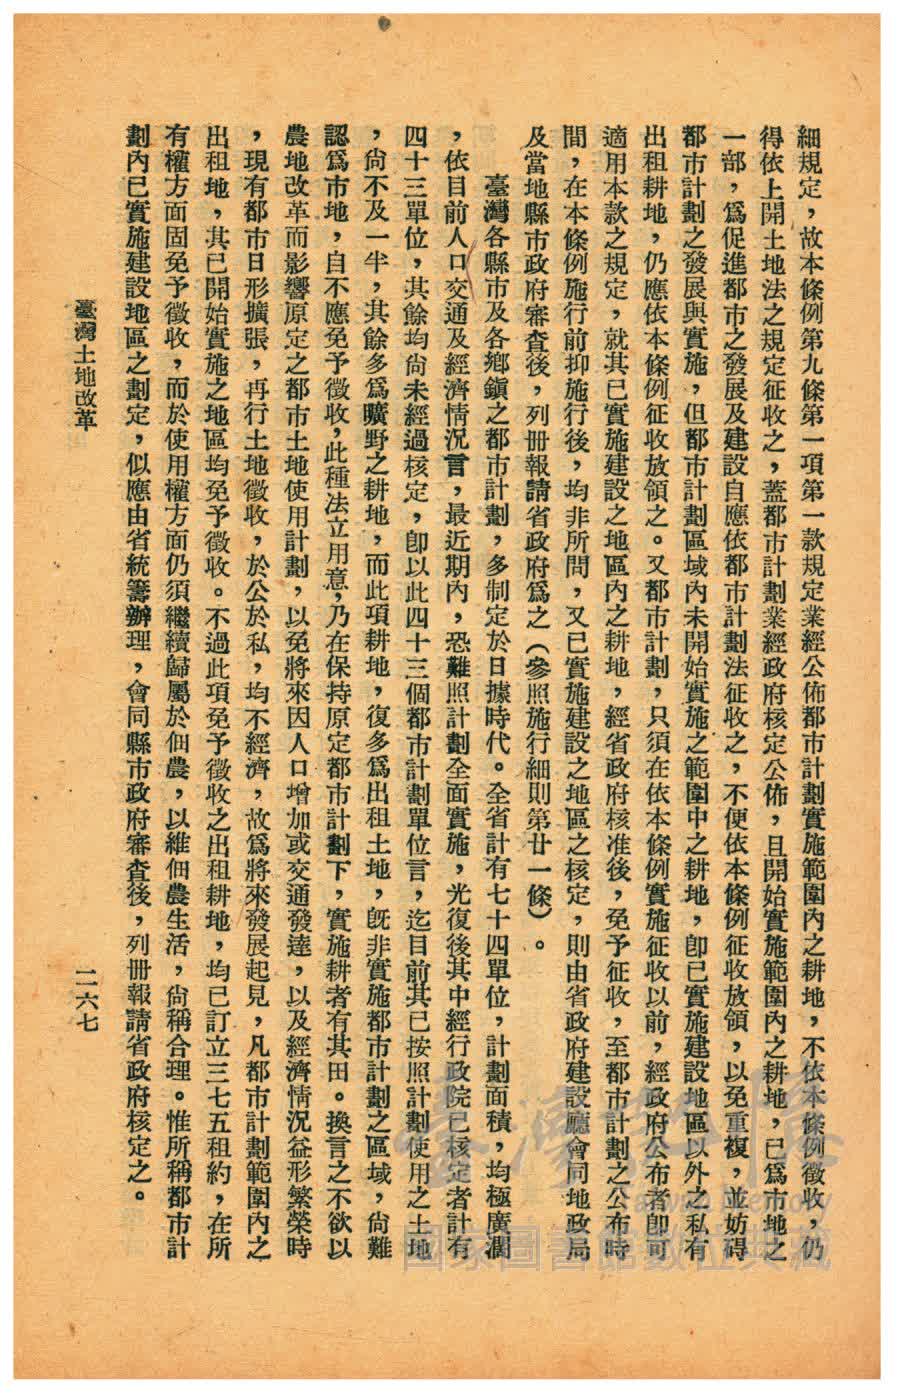 細規定，故本條例第九條第一項第一款規定業經公佈都市計劃實施範圍內之耕地，不依本條例徵收，仍
得依上開土地法之規定征收之，蓋都市計劃業經政府核定公佈，且開始實施範圍內之耕地，已爲市地之
一部，爲促進都市之發展及建設自應依都市計劃法征收之，不便依本條例征收放領，以免重複，並妨碍
都市計劃之發展與實施，但都市計劃區域內未開始實施之範圍中之耕地，卽已實施建設地區以外之私有
出租耕地，仍應依本條例征收放領之。又都市計劃，只須在依本條例實施征收以前，經政府公布者卽可
適用本款之規定，就其已實施建設之地區內之耕地，經省政府核准後，免予征收，至都市計劃之公布時
間，在本條例施行前抑施行後，均非所問，又已實施建設之地區之核定，則由省政府建設廳會同地政局
及當地縣市政府審查後，列冊報請省政府爲之（參照施行細則第廿一條）。
臺灣各縣市及各鄉鎭之都市計劃，多制定於日據時代。全省計有七十四單位，計劃面積，均極廣濶
，依目前人口交通及經濟情況言，最近期內，恐難照計劃全面實施，光復後其中經行政院已核定者計有
四十三單位，其餘均尙未經過核定，卽以此四十三個都市計劃單位言，迄目前其已按照計劃使用之土地
，尙不及一半，其餘多爲曠野之耕地，而此項耕地，復多爲出租土地，旣非實施都市計劃之區域，尙難
認爲市地，自不應免予徵收，此種法立用意，乃在保持原定都市計劃下，實施耕者有其田。換言之不欲以
農地改革而影響原定之都市土地使用計劃，以免將來因人口增加或交通發達，以及經濟情況益形繁榮時
，現有都市日形擴張，再行土地徵收，於公於私，均不經濟，故爲將來發展起見，凡都市計劃範圍內之
出租地，其已開始實施之地區均免予徵收。不過此項免予徵收之出租耕地，均已訂立三七五租約，在所
有權方面固免予徵收，而於使用權方面仍須繼續歸屬於佃農，以維佃農生活，尙稱合理。惟所稱都市計
劃內已實施建設地區之劃定，似應由省統籌辦理，會同縣市政府審查後，列冊報請省政府核定之。
臺灣土地改革
二六七
臺灣記憶
Taiwan Memory
國家圖書館數位典藏